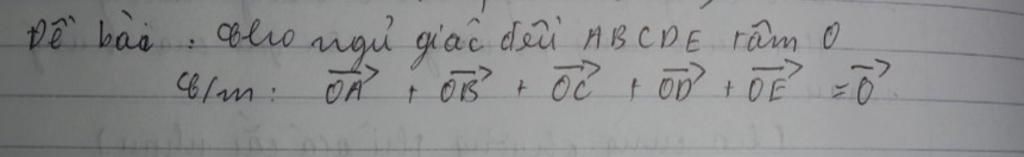 Đề bài : Cho ngũ giác đều ABCDE tâm O
C/m : $\overrightarrow{OA} + \overrightarrow{OB} + \overrightarrow{OC} + \overrightarrow{OD} + \overrightarrow{OE} = \overrightarrow{O}$